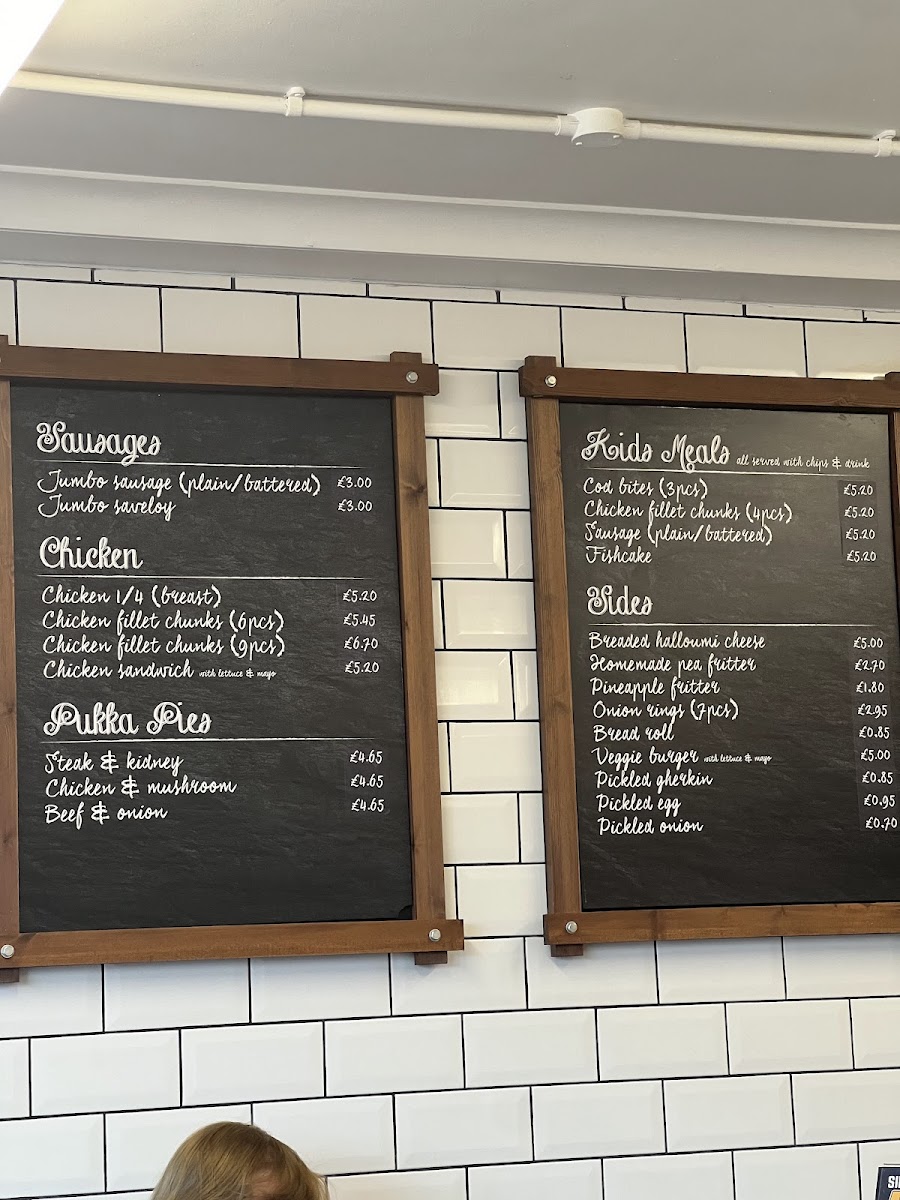 Sausages
Jumbo sausage (plain/battered) £3.00
Jumbo saveloy £3.00
Chicken
Chicken 1/4 (breast) £5.20
Chicken fillet chunks (6pcs) £5.45
Chicken fillet chunks (9pcs) £6.70
Chicken sandwich with lettuce & mayo £5.20
Pukka Pies
Steak & kidney £4.65
Chicken & mushroom £4.65
Beef & onion £4.65
Kids Meals all served with chips & drink
Cod bites (3pcs) £5.20
Chicken fillet chunks (4pcs) £5.20
Sausage (plain/battered) £5.20
Fishcake £5.20
Sides
Breaded halloumi cheese £5.00
Homemade pea fritter £2.70
Pineapple fritter £1.80
Onion rings (7pcs) £2.95
Bread roll £0.85
Veggie burger with lettuce & mayo £5.00
Pickled gherkin £0.85
Pickled egg £0.95
Pickled onion £0.70